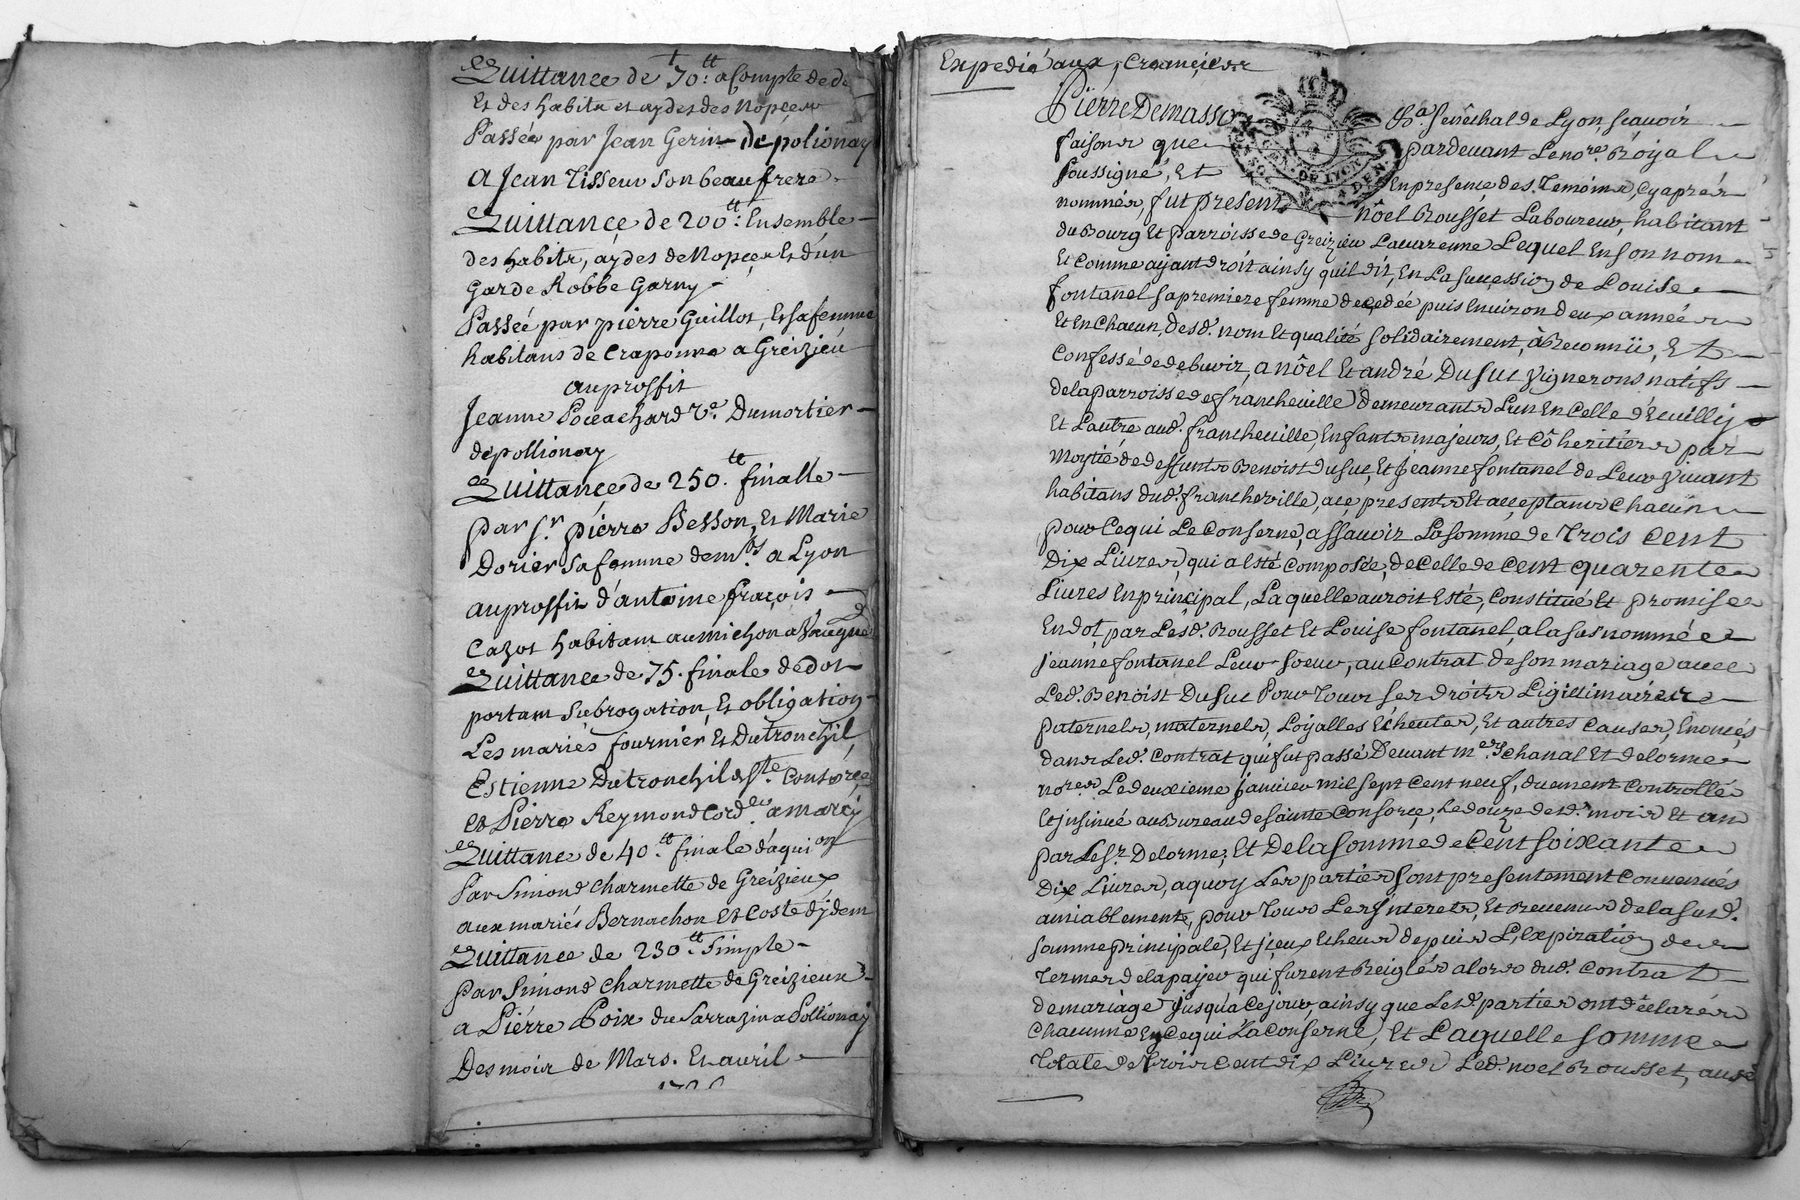 Quittance de 70.tt a Compte de d
Et des habits et aydes des Nopces
Passée par Jean Gerin de polionay
A Jean Tisseur son beau frere
Quittance de 200.tt Ensemble
des habits, aydes de Nopces Et d'un
Garde Robbe Garny
Passeé par pierre Guillot, Et sa femme
habitans de Craponne a Greizieu
au proffit
Jeanne Poccachard Ve. Dumortier
de pollionay
Quittance de 250.tt finalle
par Sr. pierre Besson, Et Marie
Dorier sa femme dem.ts a Lyon
au proffit d'antoine fraçois
Cazot habitant au michon a Vaugne
Quittance de 75. finale de dot
portant Subrogation, Et obligation
Les mariés fournier Et Dutronchil
Estienne Dutronchil de Ste. Consorce
et Pierre Reymond Cord.er a marcy
Quittance de 40.tt finale d'aquion
Par Simond Charmette de Greizieux
aux mariés Bernachon Et Coste d'ydem
Quittance de 230.tt Simple
Par Simond Charmette de Greizieux
a Piérre Poix du Sarrazin a Pollionay
Des mois de Mars. Et avril
Expedié aux Creanciers
Pierre Demasso Sénéchal de Lyon scavoir
faisons que pardevant Le no.re Royal
soussigné, Et En presence des Temoins, cy aprés
nommés, fut present Nöel Rousset Laboureur, habitant
du Bourg Et parroisse de Greizieu Lavarenne Lequel En son nom
Et comme ayant droit ainsy quil dit, En La succession de Louise
fontanel sa premiere femme decedée puis Environ deux années
Et En Chacun, desd. nom Et qualité solidairement, à Reconnü, Et
Confessé de debvoir, a nöel Et andré Dusuc Vignerons natifs
de la parroisse de francheville demeurants L'un En Celle d'Ecuilly
Et L'autre aud. francheville, Enfants majeurs, Et Cöheritiers par
Moytié de deffunts Benoist dusuc, Et Jeanne fontanel de Leur Vivant
habitans dud. francheville, ace, presents Et acceptants Chacun
pour Ce qui Le Conserne, assavoir La somme de Trois Cent
Dix Livres, qui a Esté Composée, de Celle de Cent quarente
Livres En principal, Laquelle auroit Esté, Constitué Et promise
En dot, par Lesd. Rousset Et Louise fontanel, a la susnommée
Jeanne fontanel Leur Soeur, au Contrat de son mariage avec
Led. Benoist Dusuc Pour Tous ses droits Ligittimaires
paternels, maternels, Loyalles Echeutes, Et autres Causes, Enoncés
dans Led. Contrat qui fut passé Devant m.ers Chanal Et delorme
no.res Le deuxieme Janvier mil sept Cent neuf, duement Controllé
Et insinué au Bureau de sainte Consorce, Le douze desd. mois Et an
par Le Sr. Delorme; Et De la somme de Cent soixante
Dix Livres, a quoy Les parties sont presentement Convenues
amiablement, pour Tous Les Interets, Et Revenus de la susd.
somme principale, Et iceux Echeus depuis L'expiration des
Termes de la payer qui furent Reiglés alors dud. Contrat
de mariage jusqu'a Ce jour, ainsy que Lesd. parties ont déclarés
Chacunne En Ce qui La Conserne, Et Laquelle somme
Totale de Trois Cent dix Livres Led. noel Rousset,